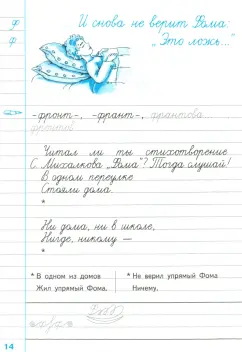 Ф
ф
И снова не верит Фома:
„Это ложь..."
-фронт-, -франт-, франтова
фронтов
Читал ли ты стихотворение
С. Михалкова „Фома"? Тогда слушай!
В одном переулке
Стояли дома.
*
Ни дома, ни в школе,
Нигде, никому —
*
* В одном из домов
Жил упрямый Фома.
* Не верил упрямый Фома
Ничему.
14